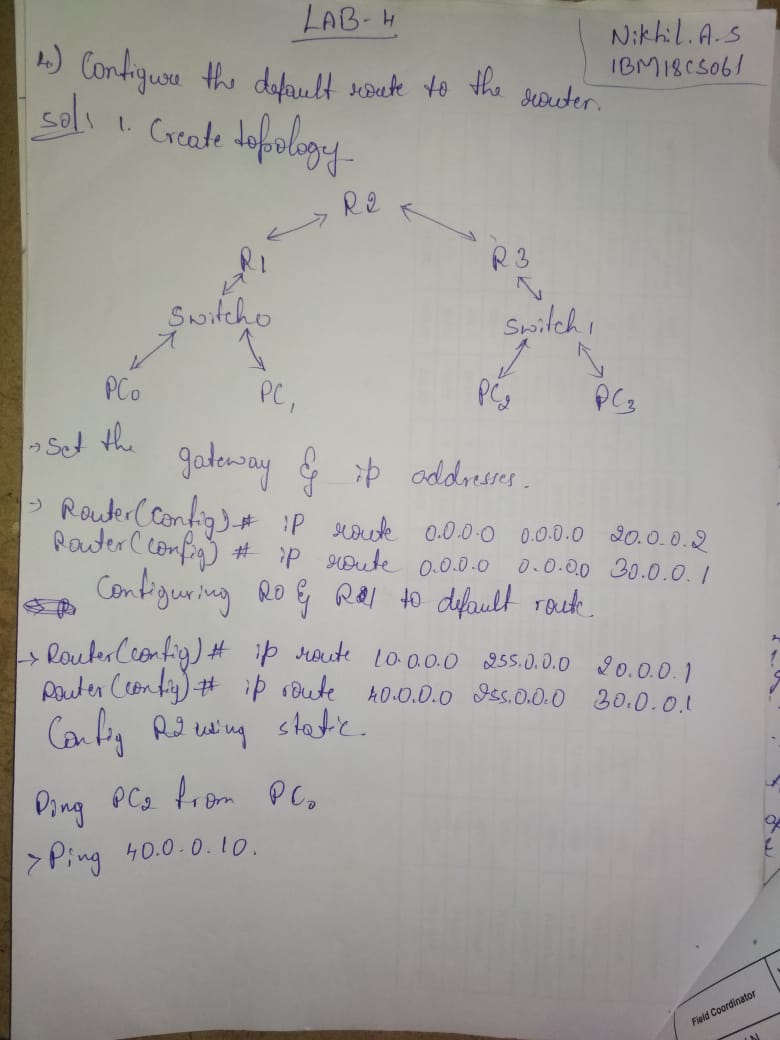 LAB-4
Nikhil.A.S
1BM18CS061
4) Configure the default route to the router.
Sol: 1. Create topology
R2
R1 R3
Switch0 Switch1
PC0 PC1 PC2 PC3
→ Set the gateway & ip addresses.
→ Router(config)# ip route 0.0.0.0 0.0.0.0 20.0.0.2
Router(config)# ip route 0.0.0.0 0.0.0.0 30.0.0.1
Configuring R0 & R1 to default route
→ Router(config)# ip route 10.0.0.0 255.0.0.0 20.0.0.1
Router(config)# ip route 40.0.0.0 255.0.0.0 30.0.0.1
Config R2 using static.
Ping PC2 from PC0
> Ping 40.0.0.10.
Field Coordinator